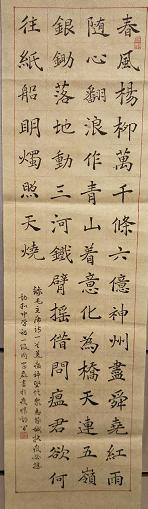 春風楊柳萬千條六億神州盡舜堯紅雨
随心翻浪作青山着意化為橋天連五嶺
銀鋤落地動三河鐵臂搖借問瘟君欲何
往紙船明燭照天燒